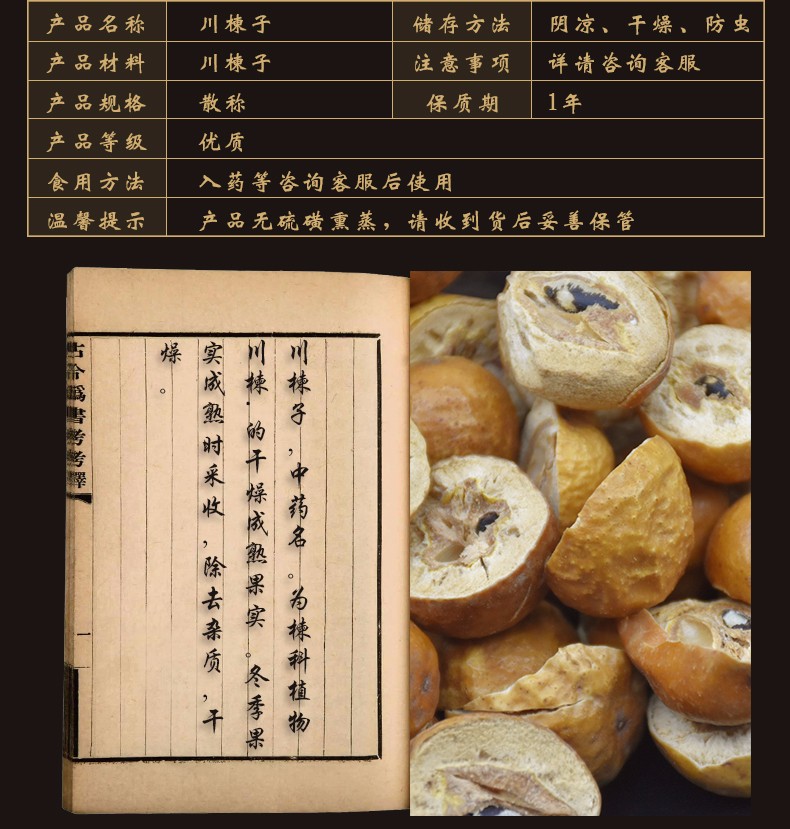 产品名称 川楝子 储存方法 阴凉、干燥、防虫
产品材料 川楝子 注意事项 详请咨询客服
产品规格 散称 保质期 1年
产品等级 优质
食用方法 入药等咨询客服后使用
温馨提示 产品无硫磺熏蒸，请收到货后妥善保管
川楝子，中药名。为楝科植物
川楝.的干燥成熟果实。冬季果
实成熟时采收，除去杂质，干
燥。
古今偽書考考釋
一